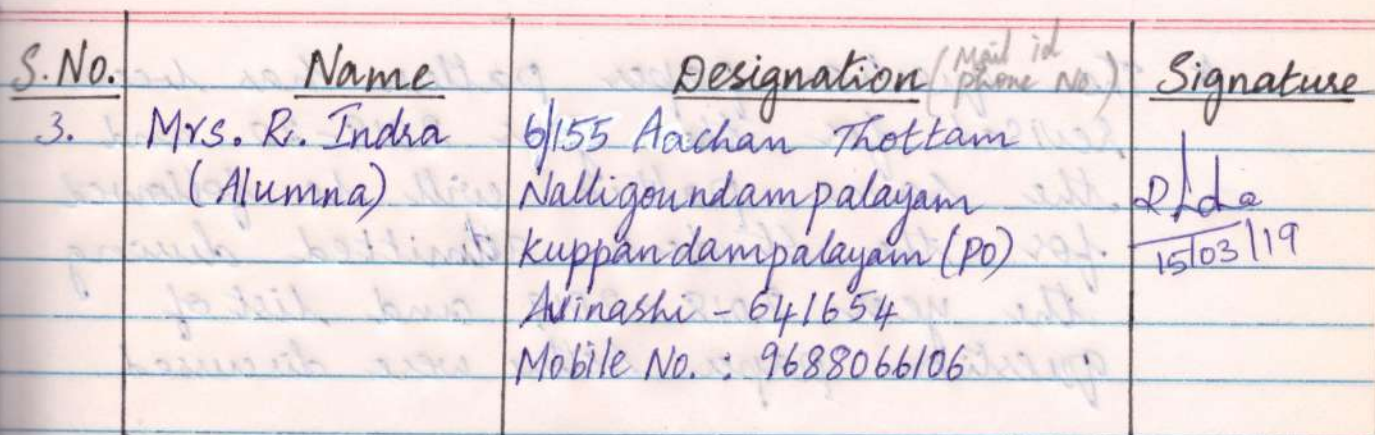 S.No. Name Designation (Mail id phone No.) Signature
3. Mrs. R. Indra 6/155 Aachan Thottam
(Alumna) Nalligoundampalayam
Kuppandampalayam (PO) 15/03/19
Avinashi - 641654
Mobile No. : 9688066106